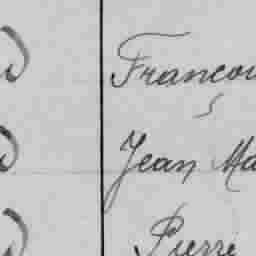 Francou
Jean Ma
Pierre